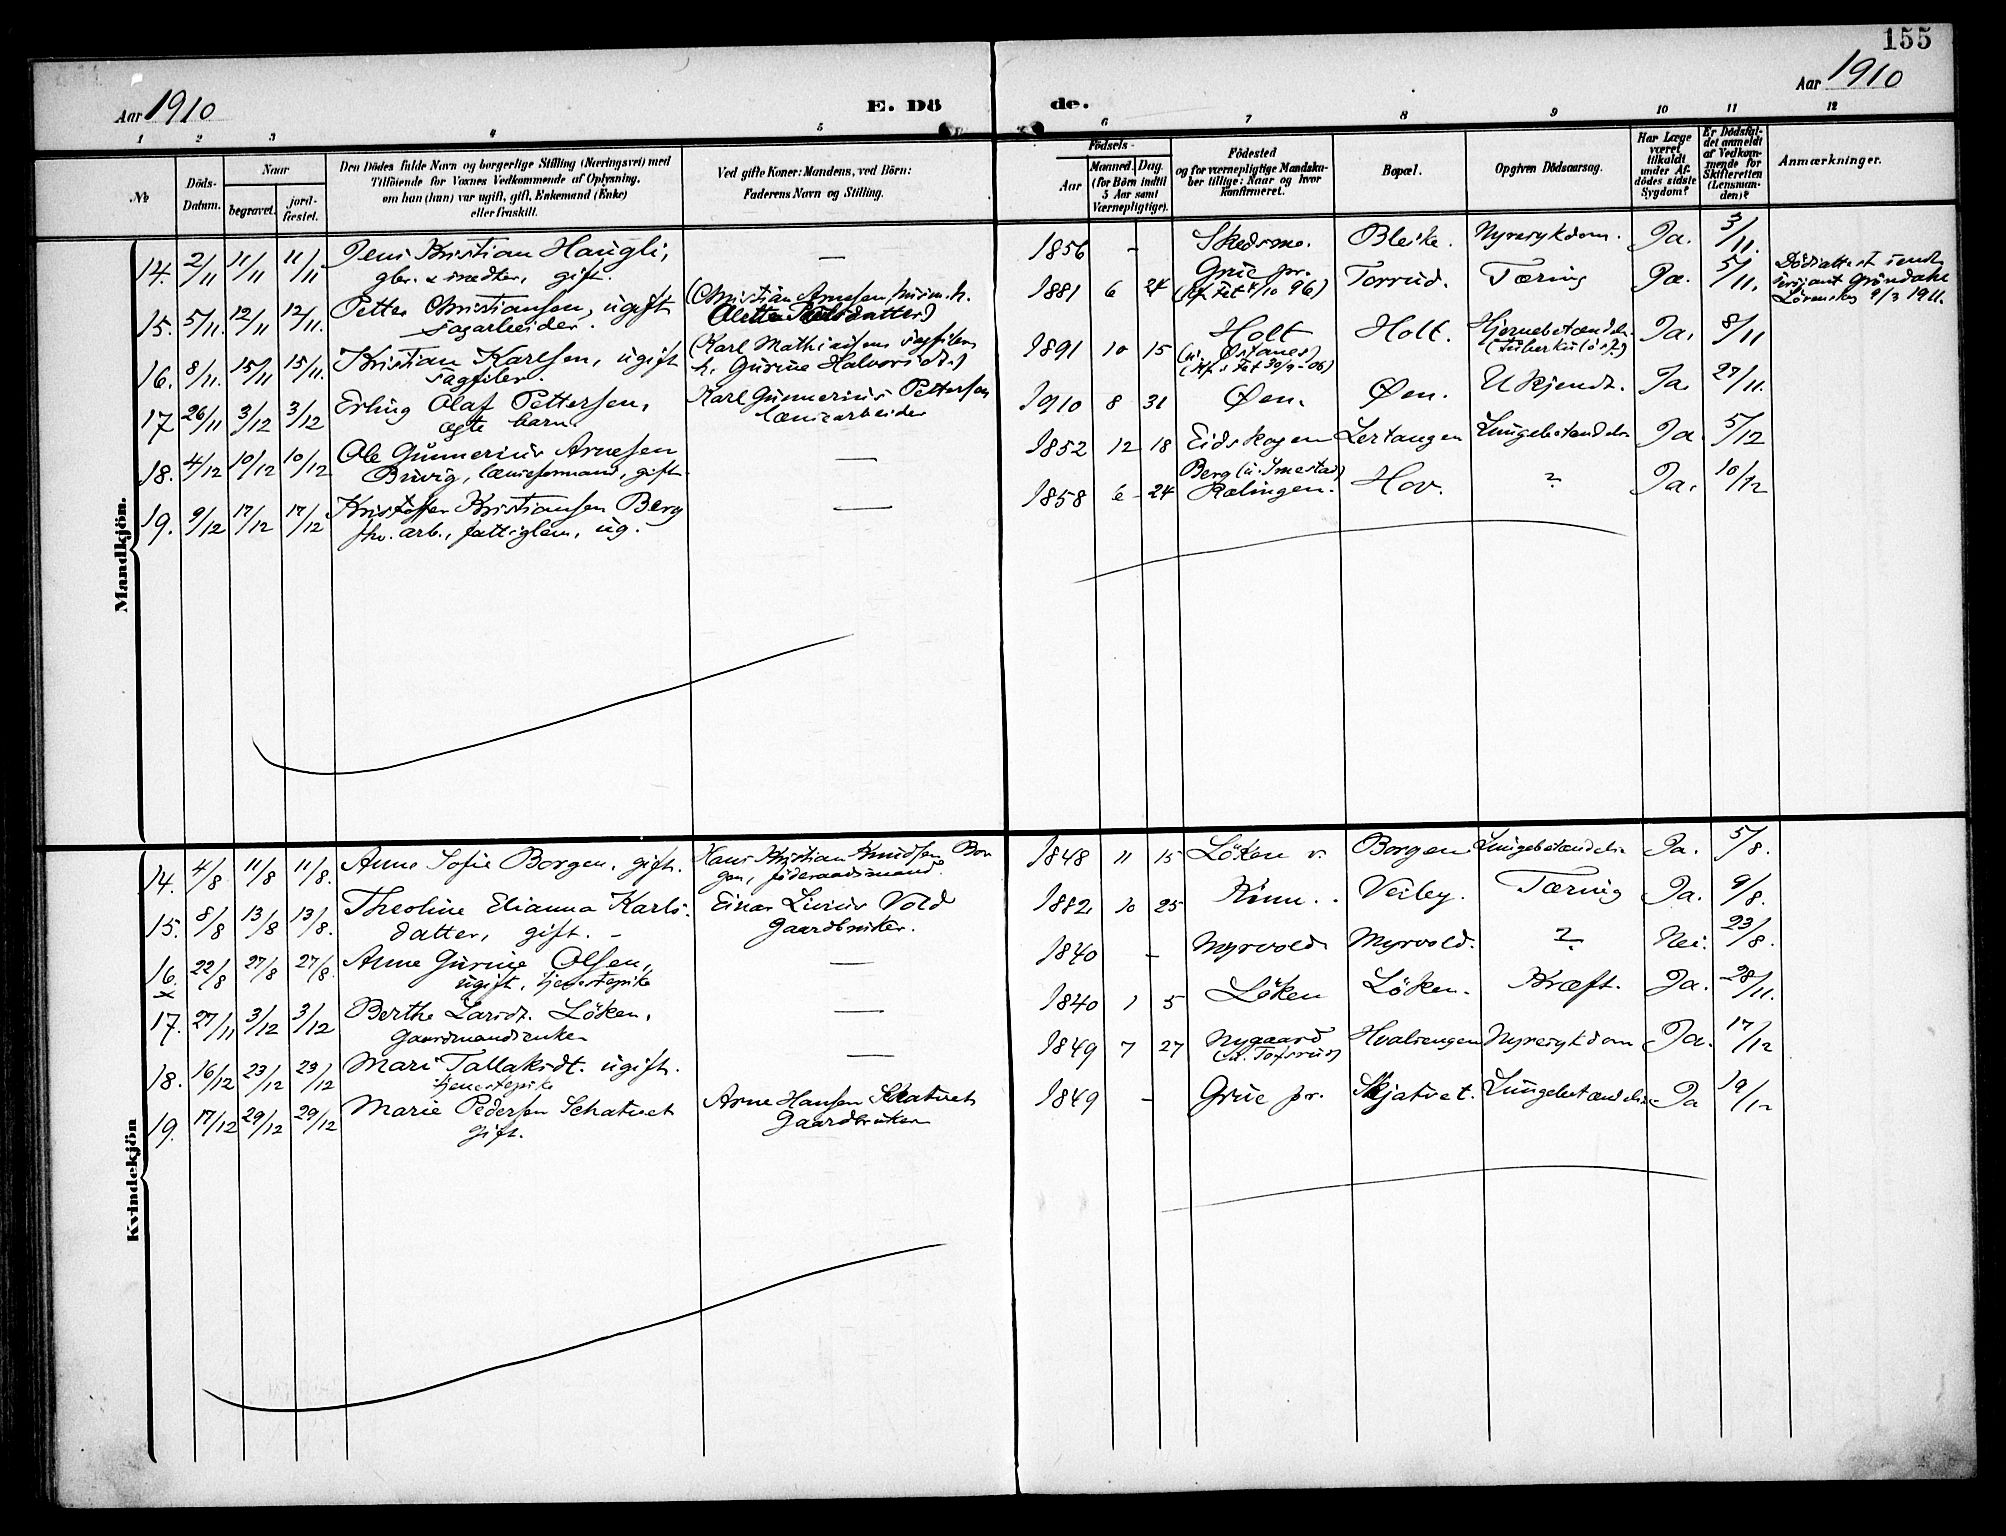 155
Aar 1910
E. Dö
de.
Aar 1910
1 2 3 4 5 6 7 8 9 10 11 12
№
Döds-
Datum.
Naar
begravet.
jord-
fæstet.
Den Dödes fulde Navn og borgerlige Stilling (Næringsvei) med
Tilföiende for Voxnes Vedkommende af Oplysning,
om han (hun) var ugift, gift, Enkemand (Enke)
eller fraskilt.
Ved gifte Koner: Mandens, ved Börn:
Faderens Navn og Stilling.
Födsels-
Aar
Maaned. Dag.
(for Börn indtil
5 Aar samt
Værnepligtige).
Födested
og for værnepligtige Mandska-
ber tillige: Naar og hvor
konfirmeret.
Bopæl.
Opgiven Dödsaarsag.
Har Læge
været
tilkaldt
under Af-
dödes sidste
Sygdom?
Er Dödsfal-
det anmeldt
af Vedkom-
mende for
Skifteretten
(Lensman-
den)?
Anmærkninger.
Mandkjön.
14. 2/11 11/11 11/11 Jens Kristian Haugli, — 1856 - Skedsmo. Bleike. Nyresykdom. Ja. 3/11.
gbr. & snedker, gift.
15. 5/11. 12/11 12/11. Petter Christiansen, ugift (Christian Arnesen 1881 6 24 Grue pr. Torrud. Tæring Ja. 5/11. Dödsattest sendt
Sagarbeider. (kf. Fet 4/10 96) Gröndahl
Lörenskog 9/3 1911.
16. 8/11. 15/11 15/11. Kristian Karlsen, ugift (Karl Mathiassen sagfiler 1891 10 15 Holt Holt. Hjernebetændelse Ja. 8/11
Sagfiler. h. Gurine Halvorsdt.) (u. Östanes) (Tuberkulös?)
(kf. i Fet 30/9-06)
17 26/11 3/12 3/12 Erling Olaf Pettersen, Karl Gunnerius Pettersen 1910 8 31 Øen. Øen. Ukjendt. Ja. 27/11.
ægte barn. lænsearbeider
18. 4/12 10/12 10/12 Ole Gunnerius Arnesen — 1852 12 18 Eidskogen Lertangen Lungebetændelse Ja. 5/12
Buvig, lænseformand, gift.
19. 9/12 17/12 17/12 Kristoffer Kristiansen Berg — 1858 6 24 Berg (u. Ymestad) Hov. ? Ja. 10/12
fhv. arb., fattiglem, ug. Rælingen.
Kvindekjön
14. 4/8 11/8 11/8. Anne Sofie Borgen, gift. Hans Kristian Knudsen Bor 1848 11 15 Löken v. Borgen Lungebetændelse Ja. 5/8.
gen, föderaadsmand.
15. 8/8 13/8 13/8. Theoline Elianna Karls- Einar Livius Vold 1882 10 25 Rönn. Veiby. Tæring Ja. 9/8.
datter, gift. - Gaardbruker.
16. 22/8 27/8 27/8. Anne Gurine Olsen, — 1840 - Myrvold Myrvold. ? Nei. 23/8.
x ugift, tjenestepike
17. 27/11 3/12 3/12 Berthe Larsdt. Löken, — 1840 1 5 Löken Löken. Kræft. Ja. 28/11.
Gaardmandsenke
18. 16/12 23/12 23/12 Mari Tallaksdt. ugift. — 1849 7 27 Nygaard Hvalsengen Nyresykdom Ja. 17/12
tjenestepike (u. Tofsrud)
19. 17/12 29/12 29/12 Marie Pedersen Schatvet Arne Hansen Skatvet 1849 - Grue pr. Skjatvet. Lungebetændelse Ja 19/12
gift. Gaardbruker